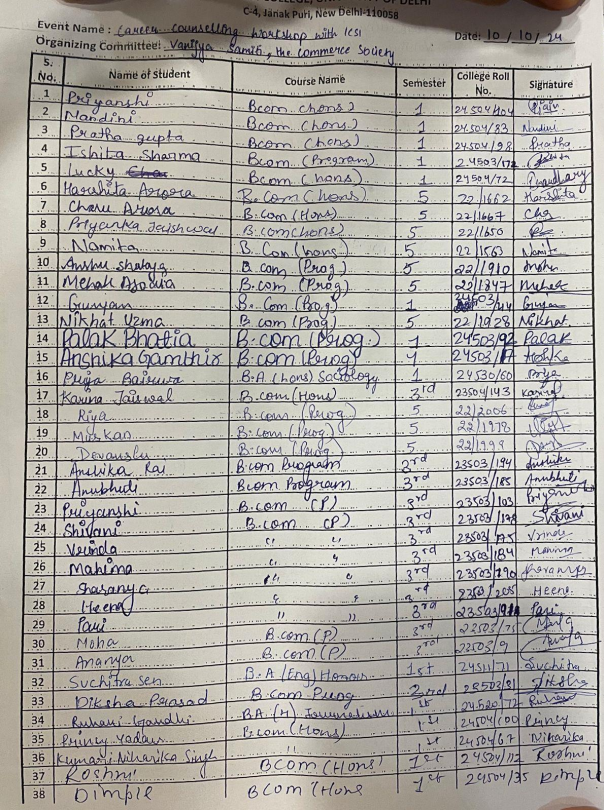 C-4, Janak Puri, New Delhi-110058
Event Name : Career counselling workshop with ICSI
Organizing Committee: Vanijya Samiti, the Commerce Society Date: 10/10/24
S. No. Name of Student Course Name Semester College Roll No. Signature
1 Priyanshi Bcom (hons) 1 24504/104
2 Nandini Bcom (hons) 1 24504/83
3 Pratha gupta Bcom (hons) 1 24504/98 Pratha
4 Ishita Sharma Bcom (Program) 1
5 Lucky Bcom (hons) 1 24504/72 Chaudhary
6 Harshita Arora B.Com (hons) 5 22/1662 Harshita
7 Charu Arora B.com (Hons) 5 22/1667
8 Priyanka Jaishwal B.com(hons) 5 22/1650
9 Namita B.Com (hons) 5 22/1563 Namita
10 Anshu B.com (Prog) 5 22/1910 Anshu
11 Mehak B.com (Prog) 5 22/1847 Mehak
12 Gunjan B.Com (Prog) 1 Gunjan
13 Nikhat Uzma B.com (Prog) 5 22/1928 Nikhat
14 Palak Bhatia B.com (Prog.) 1 24503/92 Palak
15 Anshika Gambhir B.com (Prog) 1
16 Priya B.A (hons) Sociology 1 24530/60 Priya
17 Karina Jaiswal B.com (Hons) 3rd 23504/143
18 Riya B.com (Prog) 5 22/2006
19 Muskan B.com (Prog) 5 22/1978
20 Devanshu B.com (Prog) 5
21 Anshika Rai Bcom Program 3rd 23503/194
22 Anubhuti Bcom Program 3rd 23503/185 Anubhuti
23 Priyanshi B.com (P) 3rd 23503/103
24 Shivani B.com (P) 3rd Shivani
25 Vrinda " " 3rd 23503/175
26 Mahima " " 3rd 23503/184
27 Sharanya " " 3rd 23503/190
28 Heena " " 3rd 23503/205 Heena
29 Pari " " 3rd Pari
30 Moha B.com (P) 3rd
31 Ananya B.com (P) 3rd
32 Suchitra sen B.A (Eng) Honours 1st 24511/71 Suchitra
33 Diksha Prasad B.com Prog 23503/81 Diksha
34 Ruhani Gandhi BA (H) Journalism 1st
35 Princy Yadav B.com (Hons) 1st 24504/100 Princy
36 Kumari Niharika Singh " 1st 24504/67 Niharika
37 Roshni BCom (Hons) 1st 24504/112 Roshni
38 Dimple BCom (Hons 1st 24504/35 Dimple